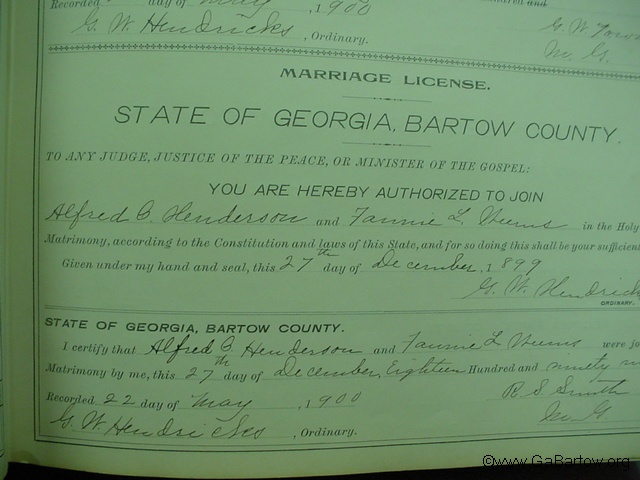 Recorded day of May , 1900 Hundred and
G. W. Hendricks , Ordinary. G. W.
M. G.
MARRIAGE LICENSE.
STATE OF GEORGIA, BARTOW COUNTY.
TO ANY JUDGE, JUSTICE OF THE PEACE, OR MINISTER OF THE GOSPEL:
YOU ARE HEREBY AUTHORIZED TO JOIN
Alfred C. Henderson and Fannie L. Weems in the Holy
Matrimony, according to the Constitution and laws of this State, and for so doing this shall be your sufficient
Given under my hand and seal, this 27th day of December, 1899
G. W. Hendrick
ORDINARY.
STATE OF GEORGIA, BARTOW COUNTY.
I certify that Alfred C. Henderson and Fannie L Weems were jo
Matrimony by me, this 27th day of December, Eighteen Hundred and ninety n
Recorded 22 day of May , 1900 R. S. Smith
G. W. Hendricks , Ordinary. M. G.
©www.GaBartow.org